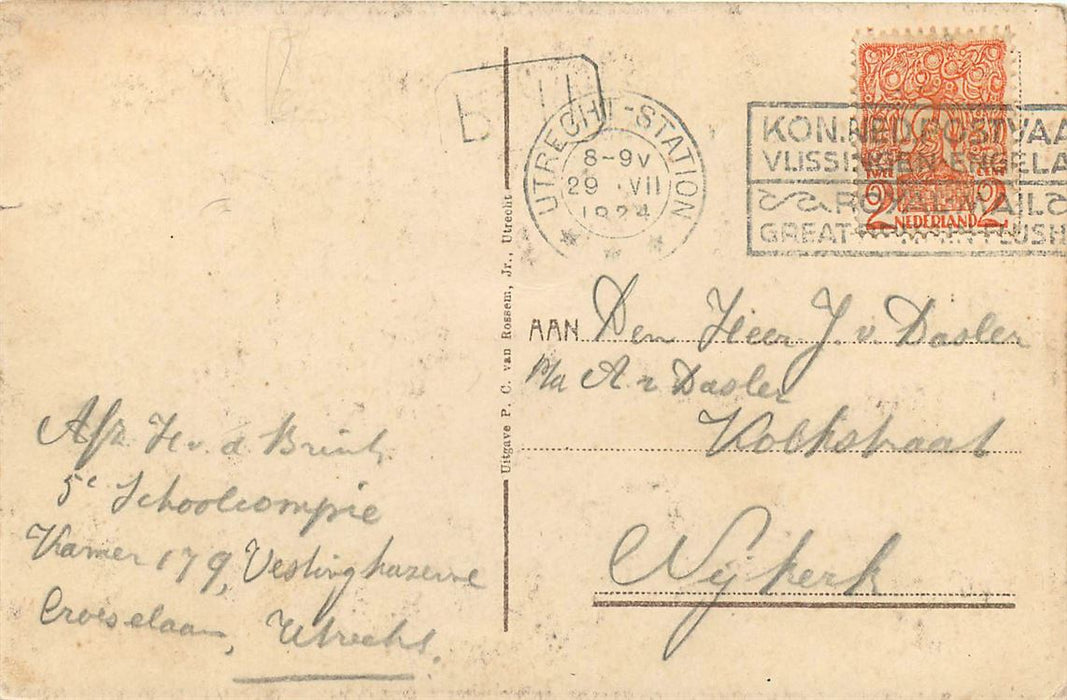 UTRECHT-STATION
8-9V
29 VII
1924
KON. NED. POSTVAA
VLISSINGEN-ENGELA
ROYAL MAIL
GREAT FLUSH
TWEE CENT
2 NEDERLAND 2
AAN Den Heer J. v. Dasler
p/a A v Dasler
Kolkstraat
Nijkerk
Uitgave P. C. van Rossem, Jr., Utrecht
Afz. H. v. d. Brink
5e Schoolcompie
Kamer 179, Vestingkazerne
Croeselaan, Utrecht.